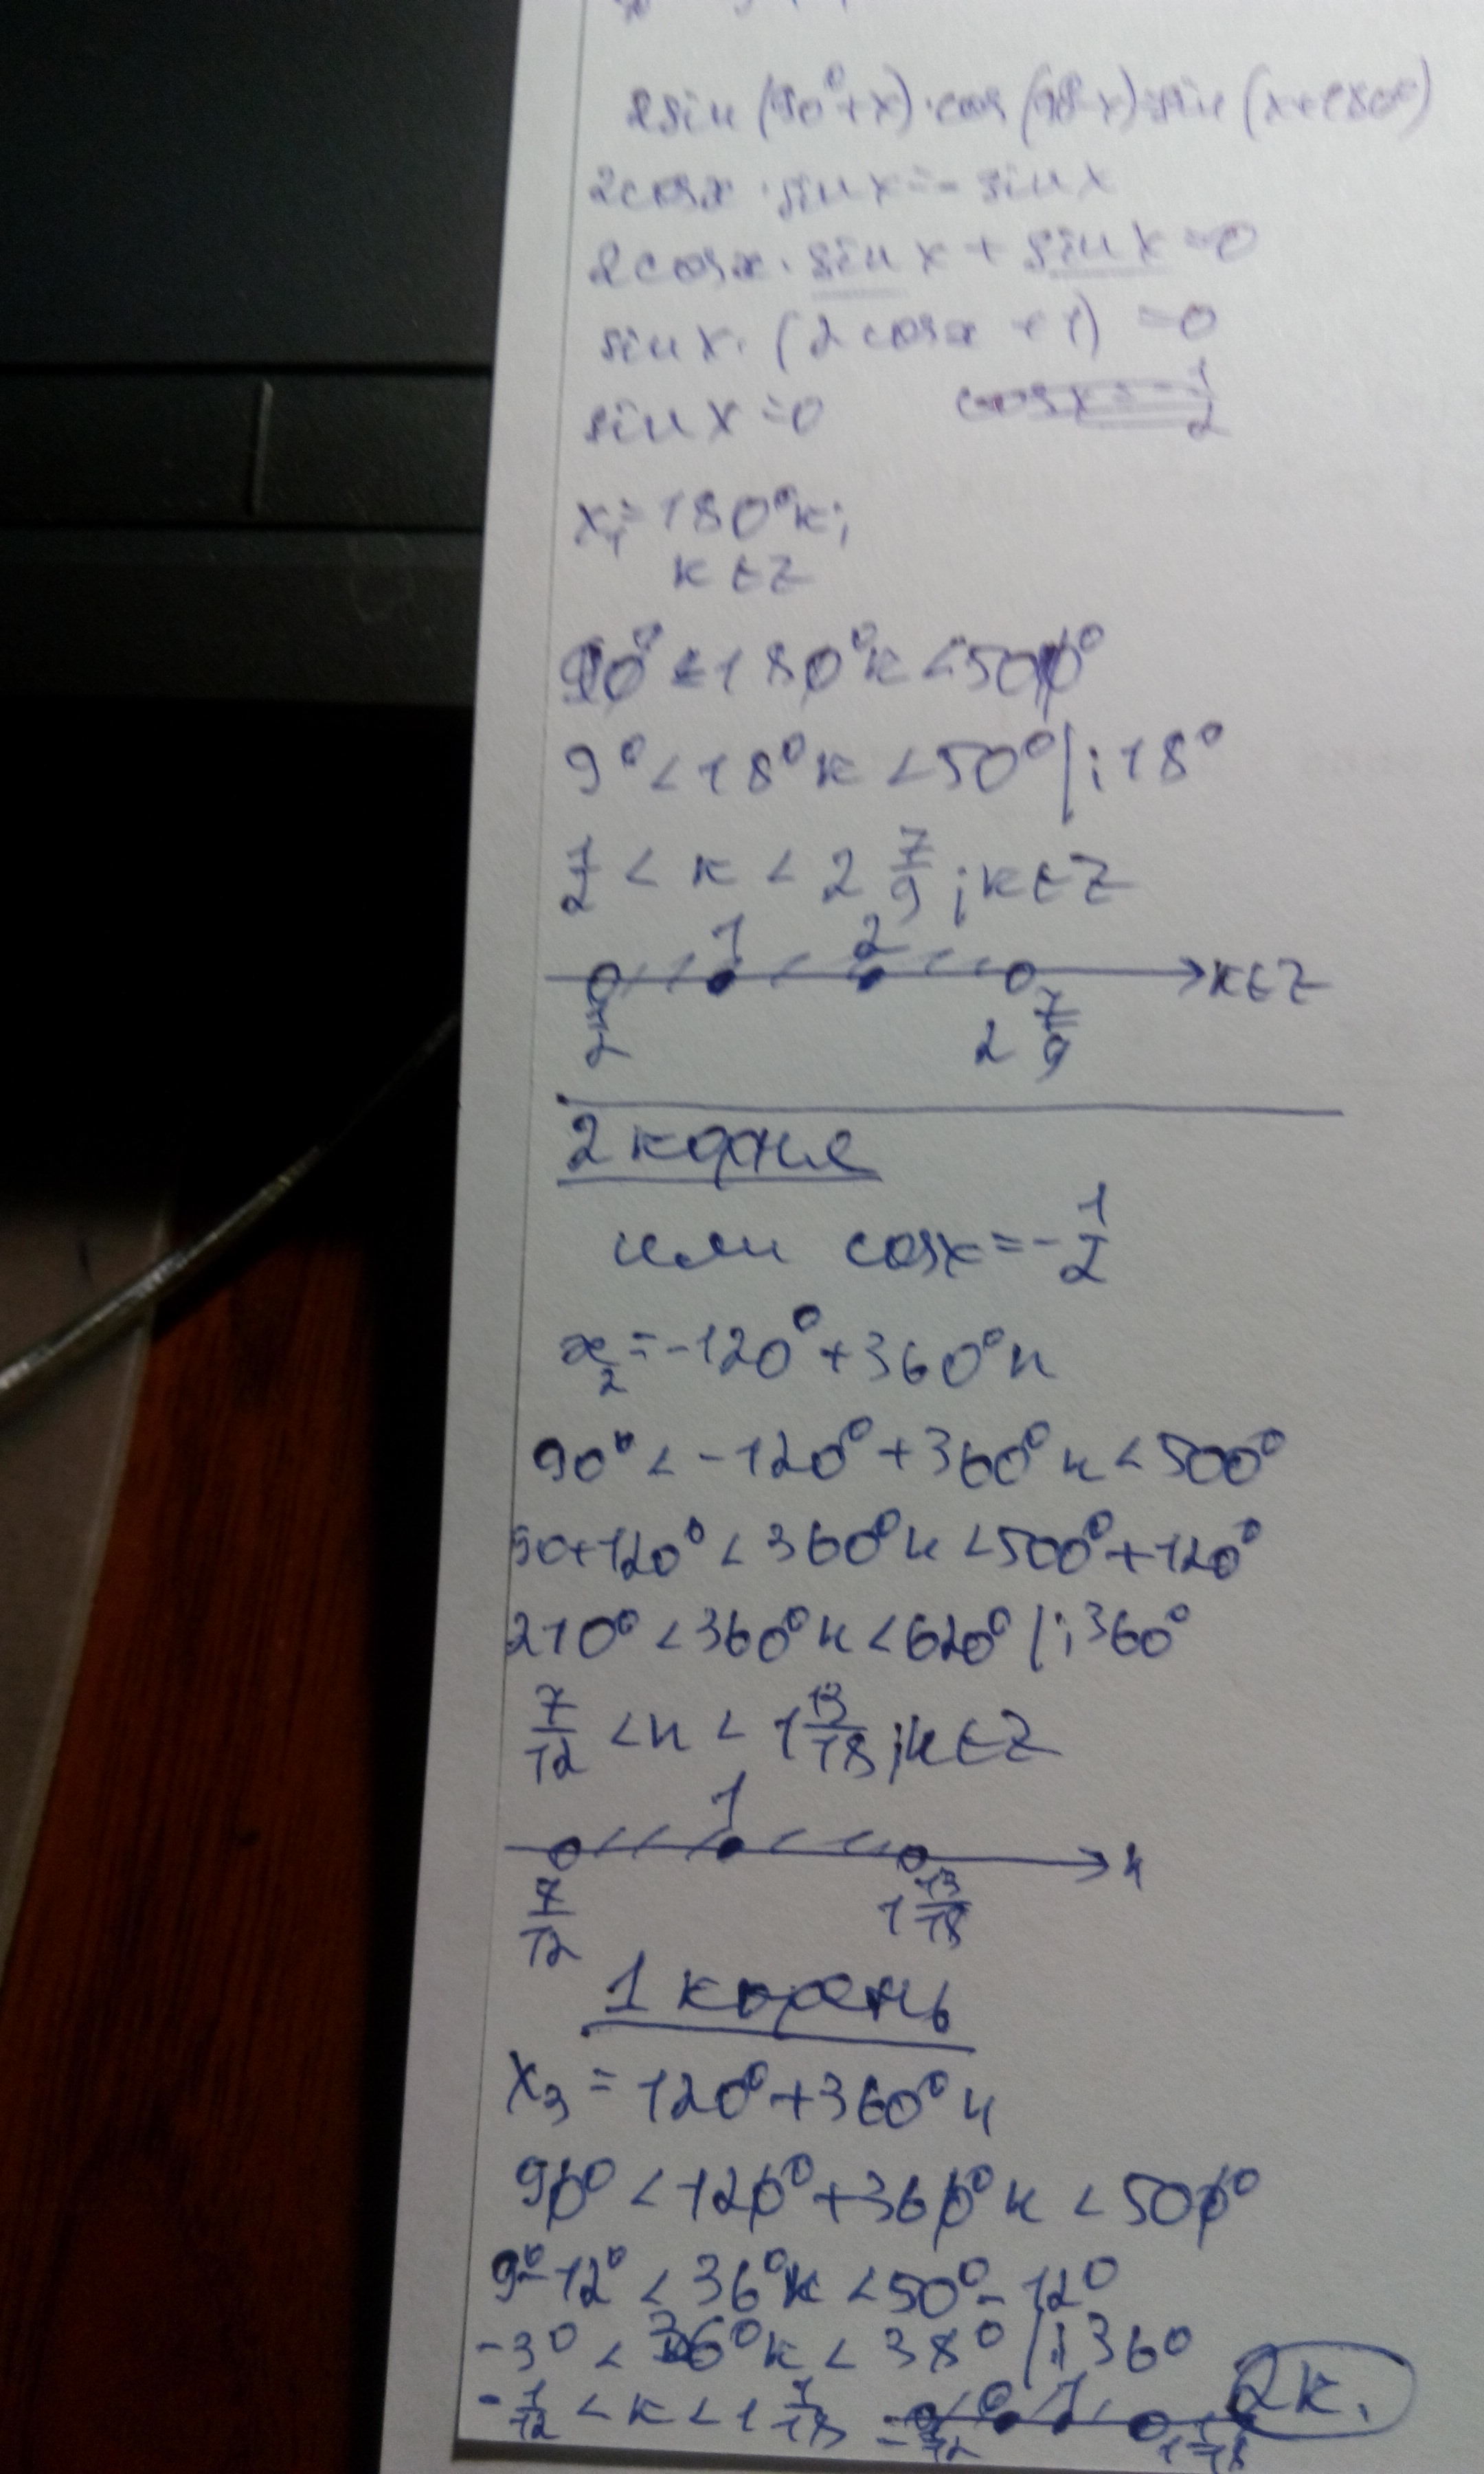 2sin(90°+x)·cos(90-x)=sin(x+180°)
2cosx·sinx=-sinx
2cosx·sinx+sinx=0
sinx·(2cosx+1)=0
sinx=0 cosx=-1/2
x₁=180°k;
k∈Z
90°<180°k<500°
9°<18°k<50° |:18°
1/2<k<2 7/9; k∈Z
1 2
1/2 2 7/9 k∈Z
2 корня
или cosx=-1/2
x₂=-120°+360°n
90°<-120°+360°n<500°
90+120°<360°n<500°+120°
210°<360°n<620° |:360°
7/12<n<1 13/18; n∈Z
1
7/12 1 13/18 n
1 корень
x₃=120°+360°n
90°<120°+360°n<500°
9°-12°<36°k<50°-12°
-3°<36°k<38° |:36°
-1/12<k<1 1/18 -1/12 0 1 1 1/18 2к.